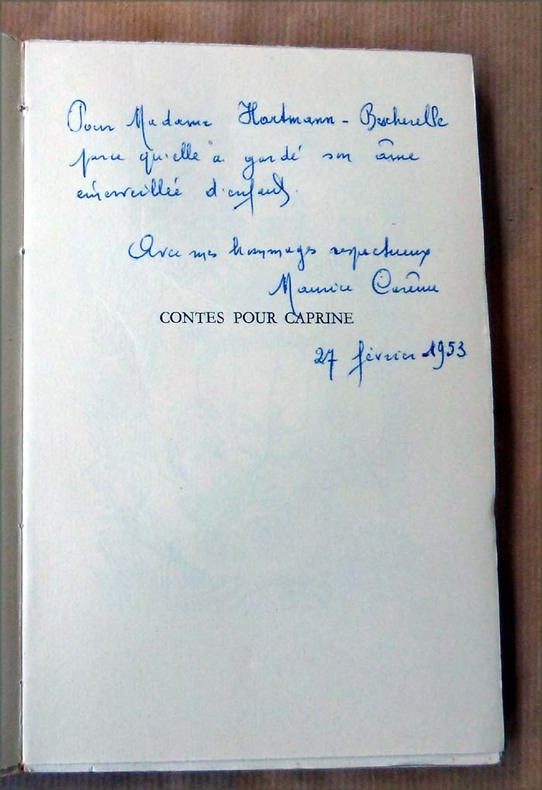 Pour Madame Hartmann - Bescherelle
parce qu'elle a gardé son âme
émerveillée d'enfant.
Avec mes hommages respectueux
Maurice Carême
CONTES POUR CAPRINE
27 février 1953